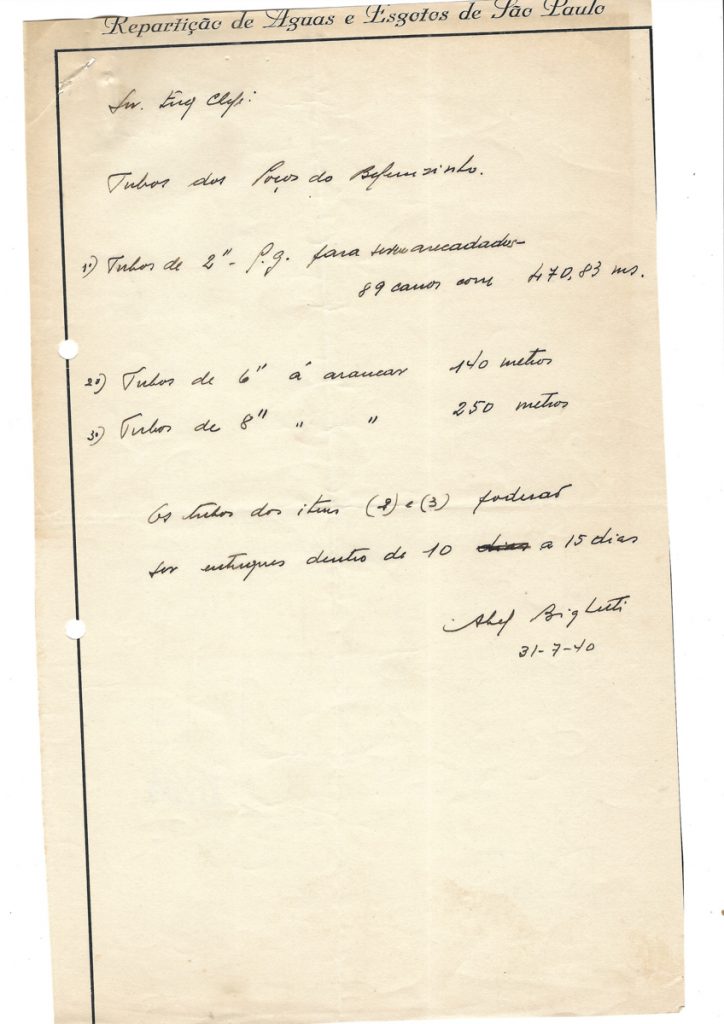 Repartição de Aguas e Esgotos de São Paulo
Snr. Eng Chefe:
Tubos dos Poços do Belemzinho.
1º) Tubos de 2" - P.g. para serem arecadados
89 canos com 470,83 ms.
2º) Tubos de 6" á arancar 140 metros
3º) Tubos de 8" " " 250 metros
Os tubos dos itens (2) e (3) poderão
ser entregues dentro de 10 dias a 15 dias
Abel
31-7-40